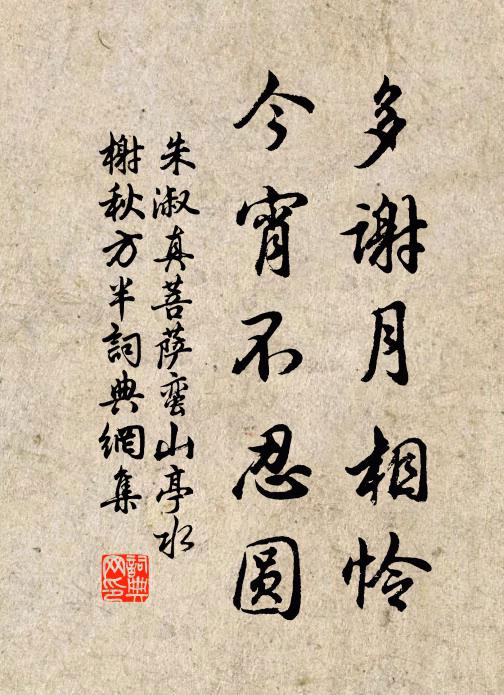 多谢月相怜
今宵不忍圆
朱淑真菩萨蛮山亭水
榭秋方半词典網集
詞典
网印